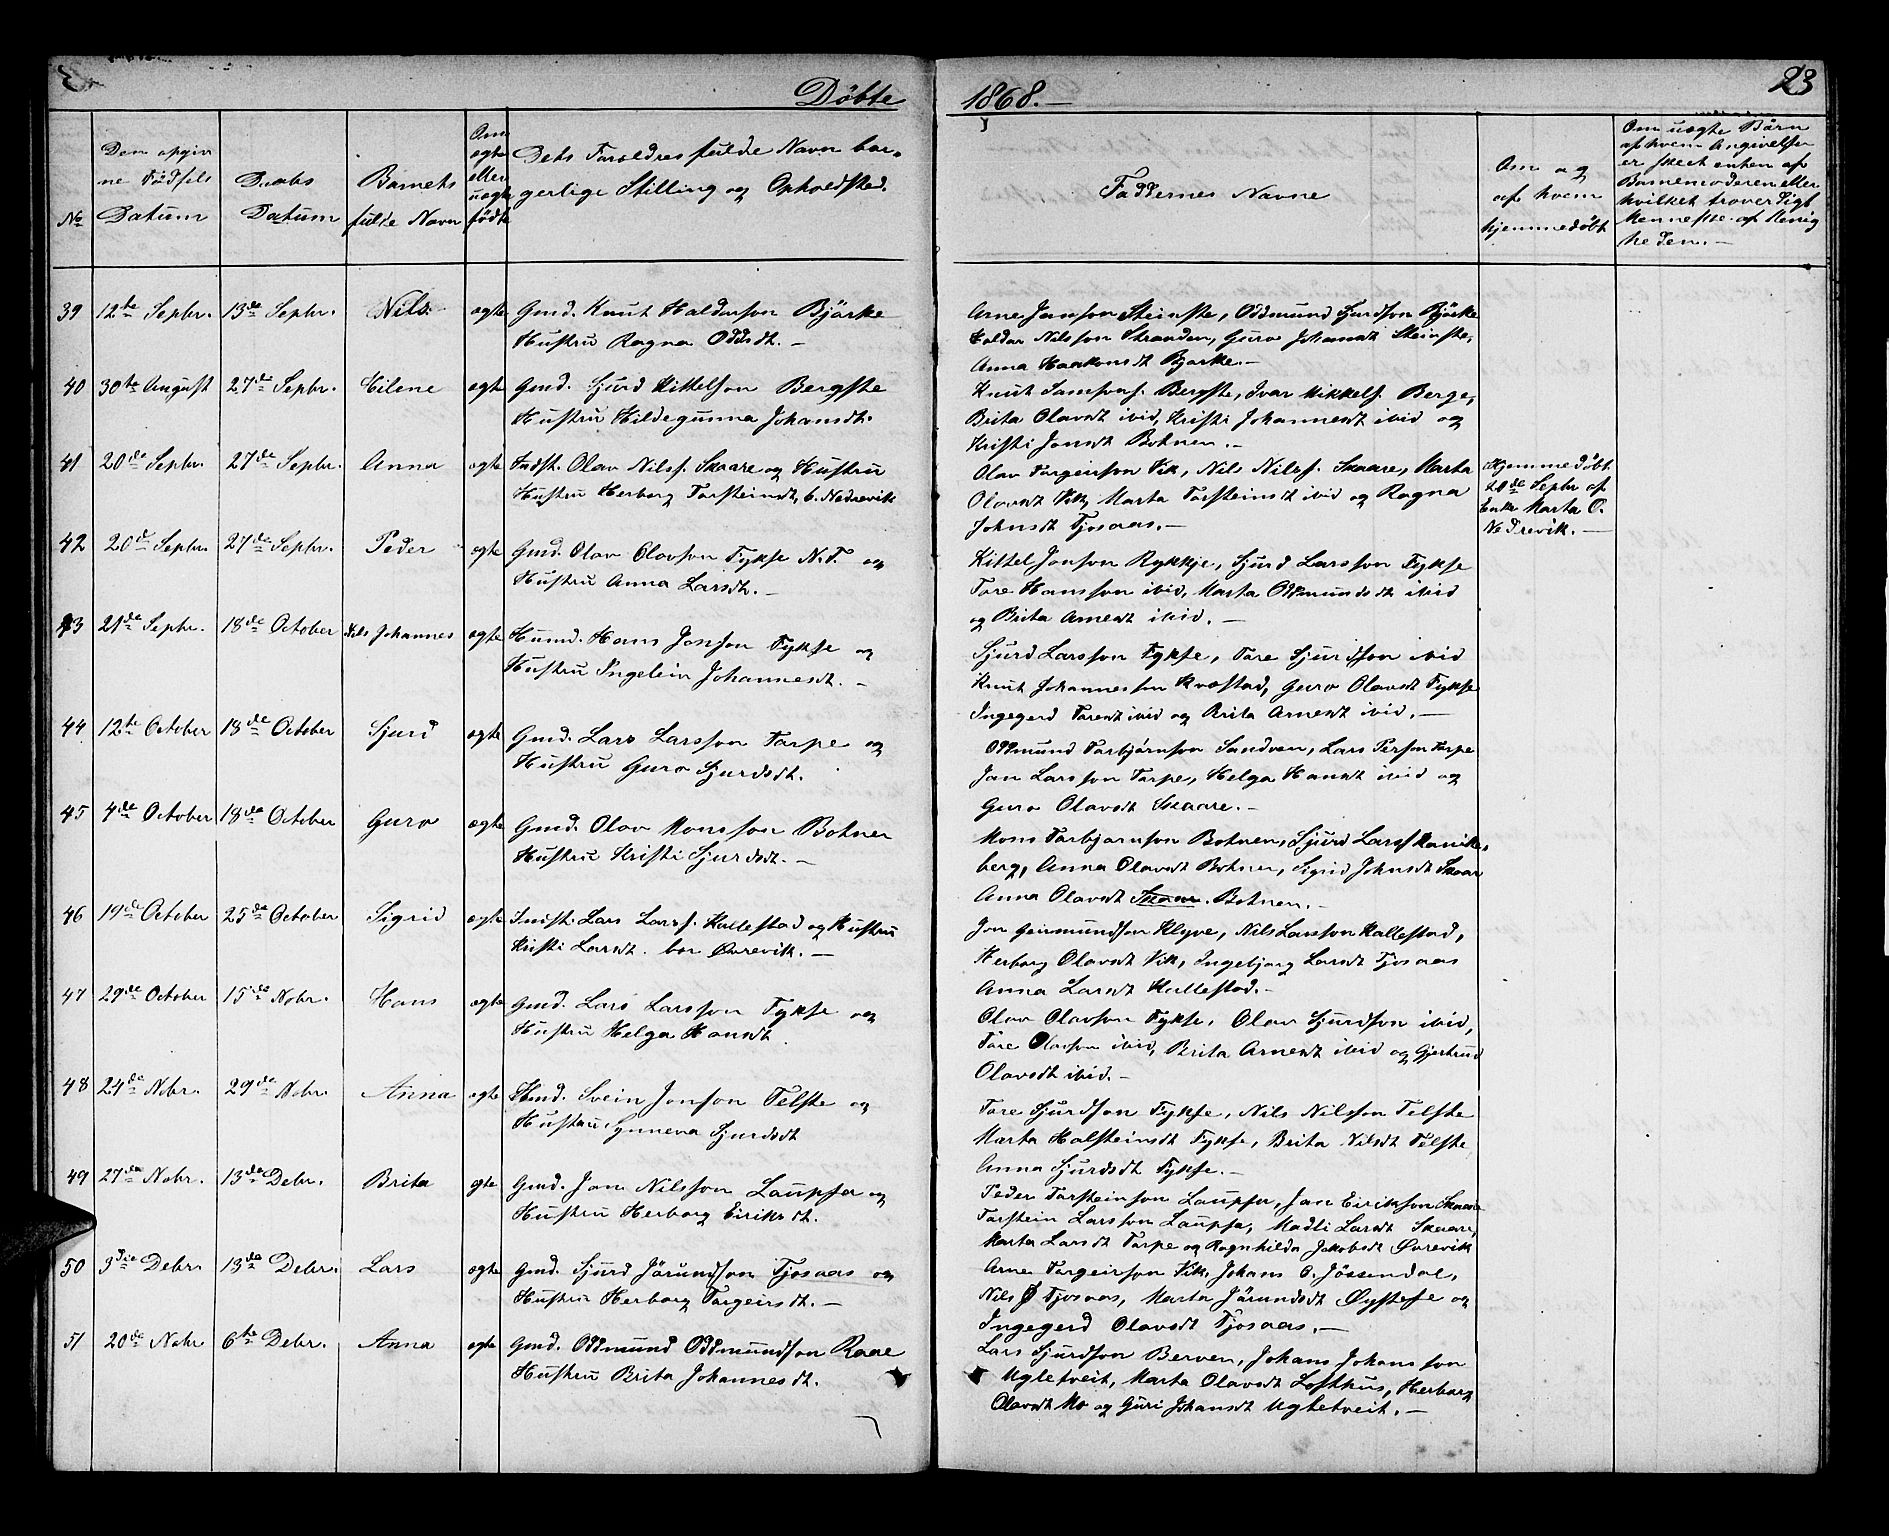 Döbte
1868.—
23
No
Den opgiv
ne Födsels
Datum
Daabs
Datum
Barnets
fulde Navn
Om
ægte
eller
uægte
födte
Dets Foroldres fulde Navn bor-
gerlige Stilling og Opholdsted.
Faddernes Navne
Om og
af hvem
hjemmedöbt
Om uægte Börn
af hvem Angivelsen
er skeet enten af
Barnemoderen eller
hvilket troverdigt
Menneske af Menig
heden.—
39 12te Septbr. 13de Septbr. Nils ægte Gmd. Knut Haldorson Björke
Hustru Ragna Oddsdt.—
Arne Jonson Steinste, Oddmund Sjurdson Björke
Haldor Nilsson Stranden, Guro Johansdt Steinste,
Anna Haakonsdt Bjorke.—
40 30te August 27de Septbr. Eilene ægte Gmd. Sjurd Kittelson Bergste
Hustru Hildegunna Johansdt.
Knut Samsons. Bergste, Ivar Mikkels. Berge,
Brita Olavsdt ibid, Kristi Johannesdt ibid og
Kristi Jonsdt Botnen.—
41 20de Septbr. 27de Septbr. Anna ægte Indst. Olav Nilss. Skaare og Hustru
Hustru Herborg Torsteinsdt, b. Nedrevik
Olav Torgeirson Vik, Nils Nilss. Skaare, Marta
Olavsdt Vik, Marta Torsteinsdt ibid og Ragna
Johnsdt Tjosaas.—
Hjemmedöbt
20de Septbr af
Enke Marta O.
Nedrevik.—
42 20de Septbr. 27de Septbr. Peder ægte Gmd. Olav Olavson Fykse N.T. og
Hustru Anna Larsdt.—
Kittel Jonson Rykkje, Sjurd Larsson Fykse
Tore Hansson ibid, Marta Oddmundsdt ibid
og Brita Arnesdt ibid.—
43 21de Septbr. 18de October Nils Johannes ægte Husmd. Hans Jonson Fykse og
Hustru Ingeleiv Johannesdt.—
Sjurd Larsson Fykse, Tore Sjurdson ibid
Knut Johannesson Kvæstad, Guro Olavsdt Fykse
Ingegerd Toresdt ibid og Brita Arnesdt ibid.—
44 12te October 18de October Sjurd ægte Gmd. Lars Larsson Torpe og
Hustru Guro Sjurdsdt.
Oddmund Torbjørnson Sandven, Lars Person Torpe
Jon Larsson Torpe, Helga Hansdt ibid og
Guro Olavsdt Skaare.—
45 4de October 18de October Guro ægte Gmd. Olav Monsson Botnen
Hustru Kristi Sjurdsdt.—
Mons Torbjørnson Botnen, Sjurd Larss
berg, Anna Olavsdt Botnen, Sigrid Johnsdt Skaar
Anna Olavsdt Skaar. Botnen.—
46 19de October 25de October Sigrid ægte Indst. Lars Larss. Kallestad og Hustru
Kristi Larsdt. bor Øvrevik.—
Jon Geirmundson Klyve, Nils Larsson Kallestad,
Herborg Olavsdt Vik, Ingebjorg Larsdt Tjosaas
Anna Larsdt Kallestad.—
47 29de October 15de Nobr. Hans ægte Gmd. Lars Larsson Fykse og
Hustru Helga Hansdt
Olav Olavson Fykse, Olav Sjurdson ibid,
Tore Olavson ibid, Brita Arnesdt ibid og Gjertrud
Olavsdt ibid.—
48 24de Nobr. 29de Nobr. Anna ægte Gmd. Svein Jonson Telste og
Hustru Gunneva Sjurdsdt
Tore Sjurdson Fykse, Nils Nilsson Telste
Marta Halsteinsdt Fykse, Brita Nilsdt Telste
Anna Sjurdsdt Fykse.—
49 27de Nobr. 13de Debr. Brita ægte Gmd. Jon Nilsson Laupsa og
Hustru Herborg Eiriksdt.
Peder Torsteinson Laupsa, Jon Eirikson Skaare
Torstein Larsson Laupsa, Madli Larsdt Skaare,
Marta Larsdt Torpe og Ragnhilda Jakobsdt Øvrevik
50 3die Debr. 13de Debr. Lars ægte Gmd. Sjurd Jörundson Tjosaas og
Hustru Herborg Torgeirsdt.—
Arne Torgeirson Vik, Johans O. Jössendal,
Nils J Tjosaas, Marta Jörundsdt Øystese og
Ingegerd Olavsdt Tjosaas.—
51 20de Nobr 6te Debr. Anna ægte Gmd. Oddmund Oddmundson Raae
Hustru Brita Johannesdt.
Lars Sjurdson Berven, Johans Johansson
Ugletveit, Marta Olavsdt Lofthus, Herborg
Olavsdt Mo og Guri Johansdt Ugletveit.—